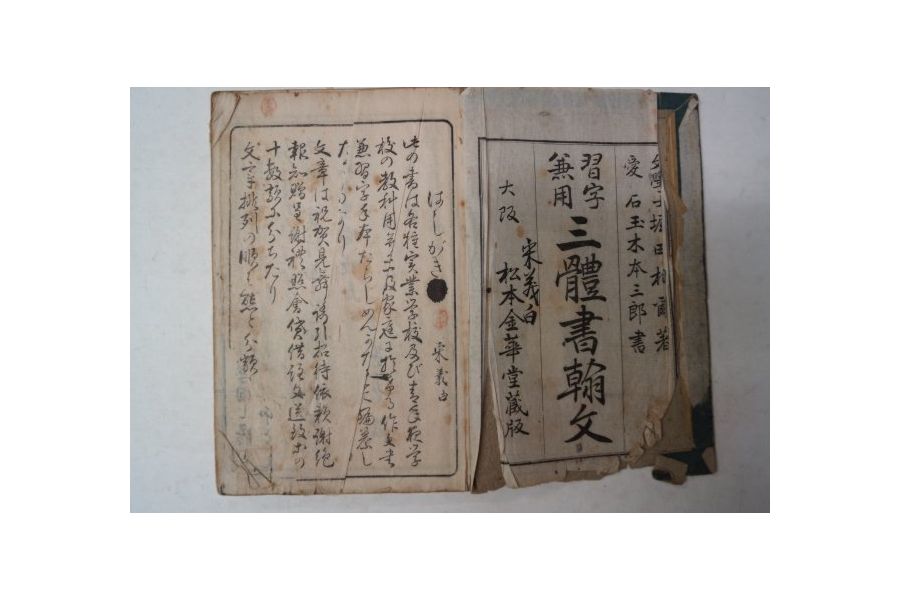 文學士堀田相爾著
愛石玉木本三郎書
習字
兼用
三體書翰文
大阪 松本金華堂蔵版
宋義白
はしがき
宋義白
此の書は各種実業学校及び青年夜学
校の教科用并に及家庭に於ける作文書
兼習字手本たらしめんが為に編纂し
たるものなり
文章は祝賀見舞誘引招待依頼謝絶
報知贈呈謝禮照會貸借註文送致等の
十数類に分ちたり
文字排列の順を